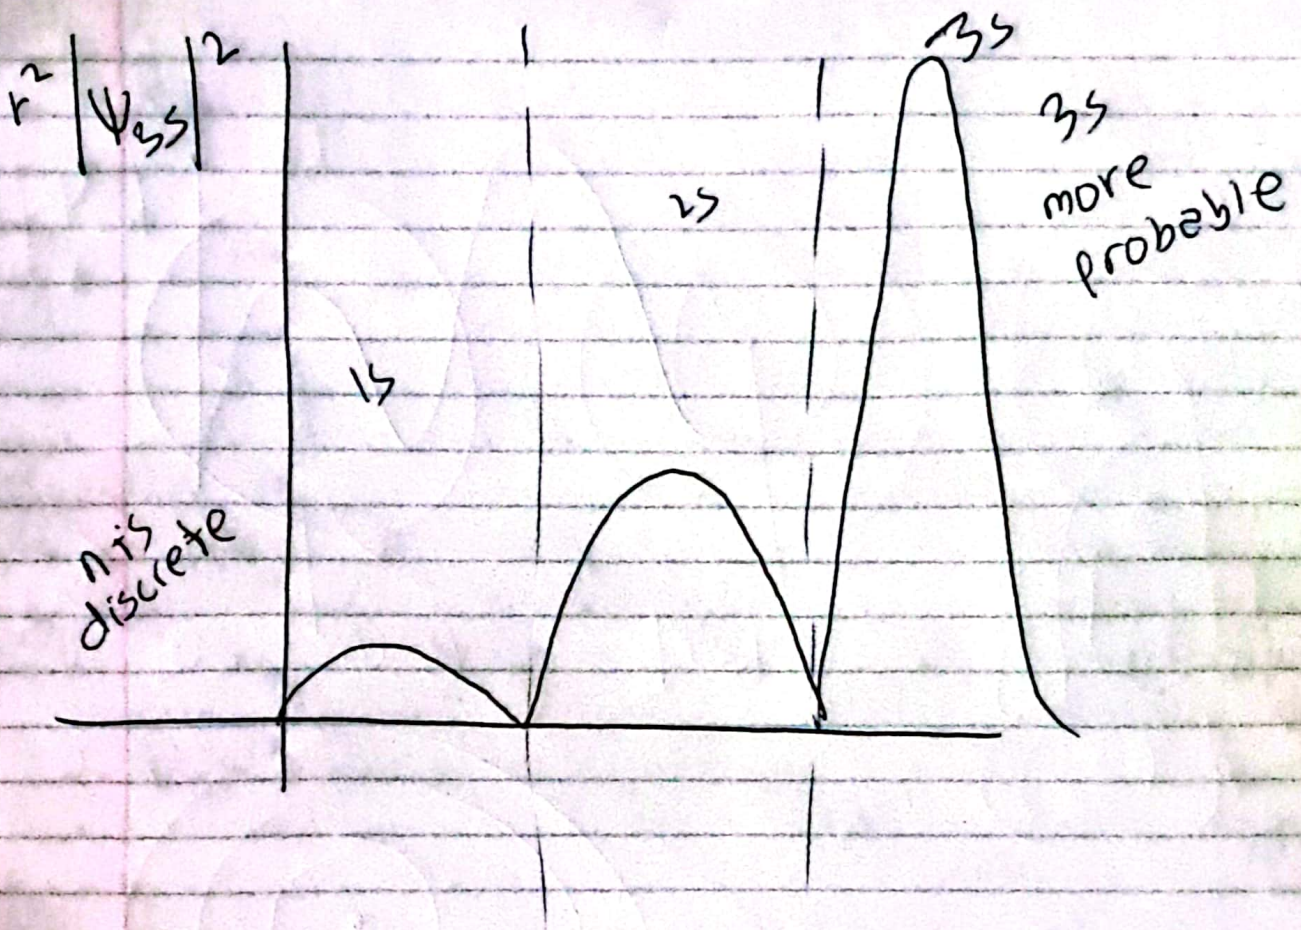 r²|Ψ3s|²
3s
3s
more
probable
2s
1s
n is
discrete